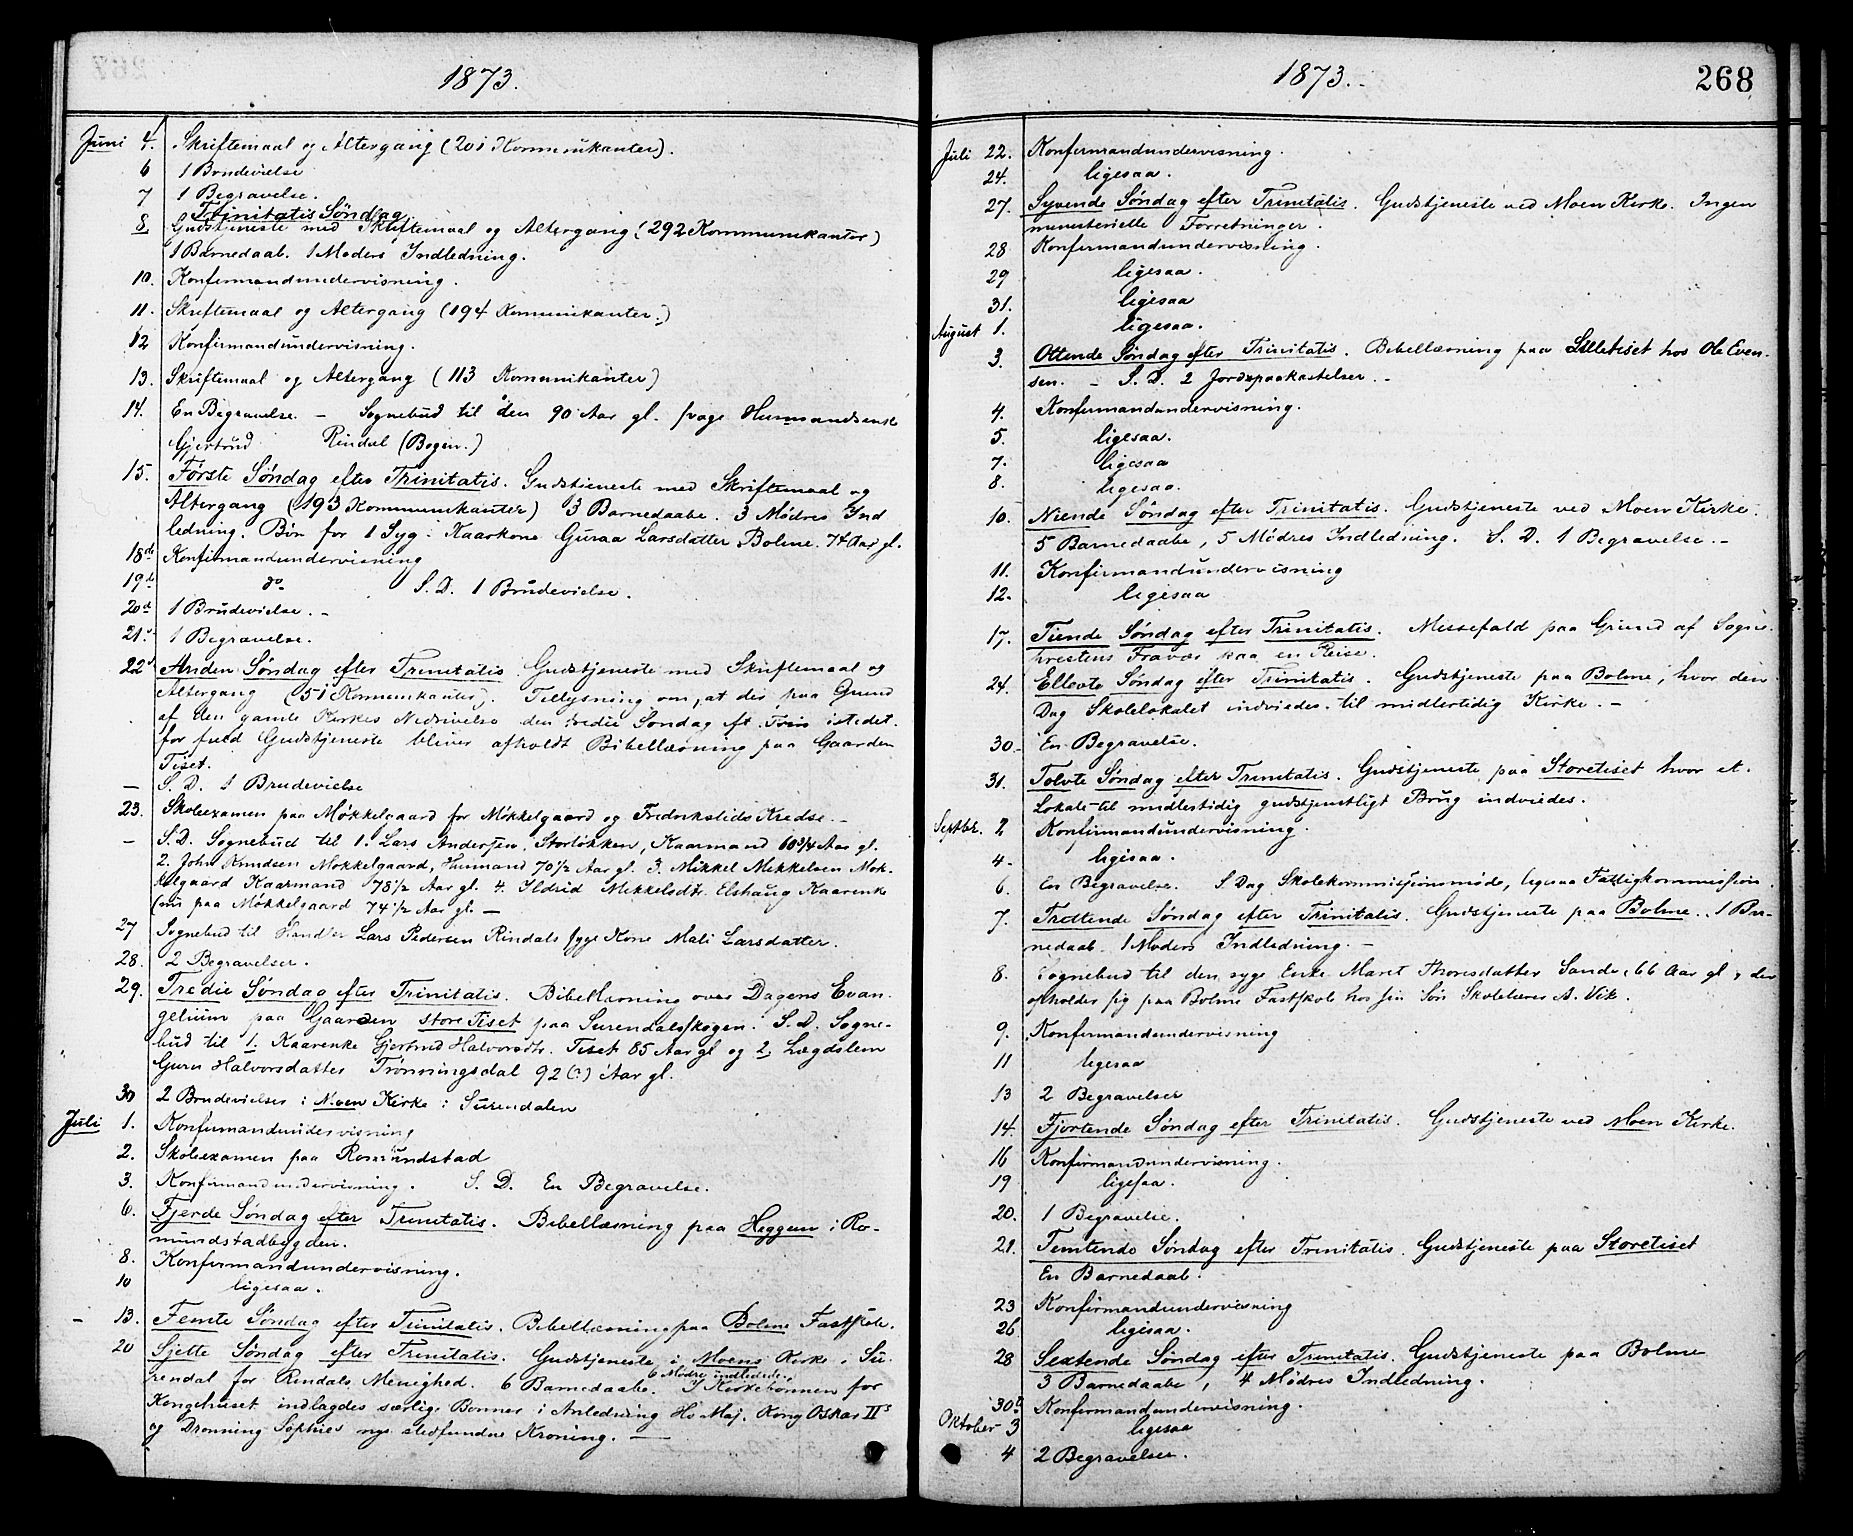 1873.
Juni 4. Skriftemaal og Altergang (201 Kommunikanter).
6 1 Brudevielse
7 1 Begravelse.
Trinitatis Søndag
8 Gudstjeneste med Skriftemaal og Altergang (292 Kommunikanter)
1 Barnedaab. 1 Moders Indledning.
10. Konfirmandundervisning.
11. Skriftemaal og Altergang (194 Kommunikanter.)
12 Konfirmandundervisning.
13. Skriftemaal og Altergang (113 Komunikanter)
14. En Begravelse – Sognebud til den 90 Aar gl. svage Husmandsenke
Gjertrud Rindal (Bogen.)
15. Første Søndag efter Trinitatis. Gudstjeneste med Skriftemaal og
Altergang (193 Kommunikanter) 3 Barnedaabe. 3 Mødres Ind
ledning. Bøn for 1 Syg: Kaarkone Guraa Larsdatter Bolme. 74 Aar gl.
18de Konfirmandundervisning
19d do S. D. 1 Brudevielse.
20d 1 Brudevielse. –
21. 1 Begravelse.
22d Anden Søndag efter Trinitatis Gudstjeneste med Skriftemaal og
Altergang (51 Kommunikanter). Tillysning om, at der paa Grund
af den gamle Kirkes Nedrivelse den tredie Søndag eft. Trin istedet.
for fuld Gudstjeneste bliver afholdt Bibellæsning paa Gaarden
Tiset.
– S. D. 1 Brudevielse
23. Skoleexamen paa Møkkelgaard for Møkkelgaard og Frederikslids Kredse. –
– S. D. Sognebud til 1. Lars Andersen Storløkken, Kaarmand 60 3/4 Aar gl.
2. John Knudsen Møkkelgaard, Husmand 70 1/2 Aar gl. 3. Mikkel Mikkelsen Møk-
kelgaard Kaarmand 78 1/2 Aar gl. 4. Ildrid Mikkelsdtr. Elshaug Kaarenke
(nu paa Møkkelgaard 74 1/2 Aar gl. –
27 Sognebud til Lars Pedersen Rindals syge Kone Mali Larsdatter.
28. 2 Begravelser.
29. Tredie Søndag efter Trinitatis. Bibellæsning over Dagens Evan
gelium paa Gaarden Store Tiset paa Surendalsskogen. S. D. Sogne-
bud til 1. Kaarenke Gjertrud Halvorsdtr. Tiset 85 Aar gl og 2. Lægdslem
Guru Halvorsdatter Trønningsdal 92 (?) Aar gl.
30 2 Brudevielser i Moen Kirke i Surendalen
Juli 1. Konfirmandundervisning
2. Skoleexamen paa Romundstad
3. Konfirmandundervisning. S. D. En Begravelse.
6. Fjerde Søndag efter Trinitatis. Bibellæsning paa Heggem i Ro-
mundstadbygden.
8. Konfirmandundervisning.
10 ligesaa.
– 13. Femte Søndag efter Trinitatis. Bibellæsning paa Bolme Fastskole.
20 Sjette Søndag efter Trinitatis. Gudstjeneste i Moens Kirke i Su-
rendal for Rindals Menighed. 6 Barnedaabe. 6 Mødre indledede. I Kirkebønnen for
Kongehuset indlagdes særlige Bønner i Anledning Hs Maj. Kong Oskar IIs
og Dronning Sophies nys stedfundne Kroning. –
1873. 268
Juli 22. Konfirmandundervisning.
24. ligesaa.
27. Syvende Søndag efter Trinitatis. Gudstjeneste ved Moen Kirke. Ingen
ministerielle Forretninger.
28 Konfirmandundervisning.
29 ligesaa.
31. ligesaa
August 1. ligesaa.
3. Ottende Søndag efter Trinitatis. Bibellæsning paa Lilletiset hos Ole Even-
sen. – S. D. 2 Jordspaakastelser. –
4. Konfirmandundervisning.
5. ligesaa.
7. ligesaa
8. ligesaa.
10. Niende Søndag efter Trinitatis. Gudstjeneste ved Moen Kirke.
5 Barnedaabe, 5 Mødres Indledning. S. D. 1 Begravelse. –
11. Konfirmandundervisning
12. ligesaa
17. Tiende Søndag efter Trinitatis. Messefald paa Grund af Sogne-
prestens Fravær paa en Reise.
24. Ellevte Søndag efter Trinitatis. Gudstjeneste paa Bolme, hvor den
Dag Skolelokalet indviedes til midlertidig Kirke. –
30. En Begravelse.
31. Tolvte Søndag efter Trinitatis. Gudstjeneste paa Storetiset hvor et
Lokale til midlertidig gudstjenstligt Brug indviedes.
Septbr. 2 Konfirmandundervisning.
4. ligesaa.
6. En Begravelse. S. Dag Skolekommissionsmøde, ligesaa Fattigkommission.
7. Trettende Søndag efter Trinitatis. Gudstjeneste paa Bolme. 1 Bar-
nedaab. 1 Moders Indledning. –
8. Sognebud til den syge Enke Maret Thoresdatter Sande, 66 Aar gl, der
opholder sig paa Bolme Fastskole hos sin Søn Skolelærer A. Vik.
9. Konfirmandundervisning
11 ligesaa
13 2 Begravelser
14. Fjortende Søndag efter Trinitatis. Gudstjeneste ved Moen Kirke.
16 Konfirmandundervisning.
19 ligesaa.
20. 1 Begravelse.
21. Femtende Søndag efter Trinitatis. Gudstjeneste paa Storetiset
En Barnedaab.
23 Konfirmandundervisning
26. ligesaa.
28 Sextende Søndag efter Trinitatis. Gudstjeneste paa Bolme
3 Barnedaabe, 4 Mødres Indledning.
30d Konfirmandundervisning.
Oktober 3 ligesaa
4 2 Begravelser.